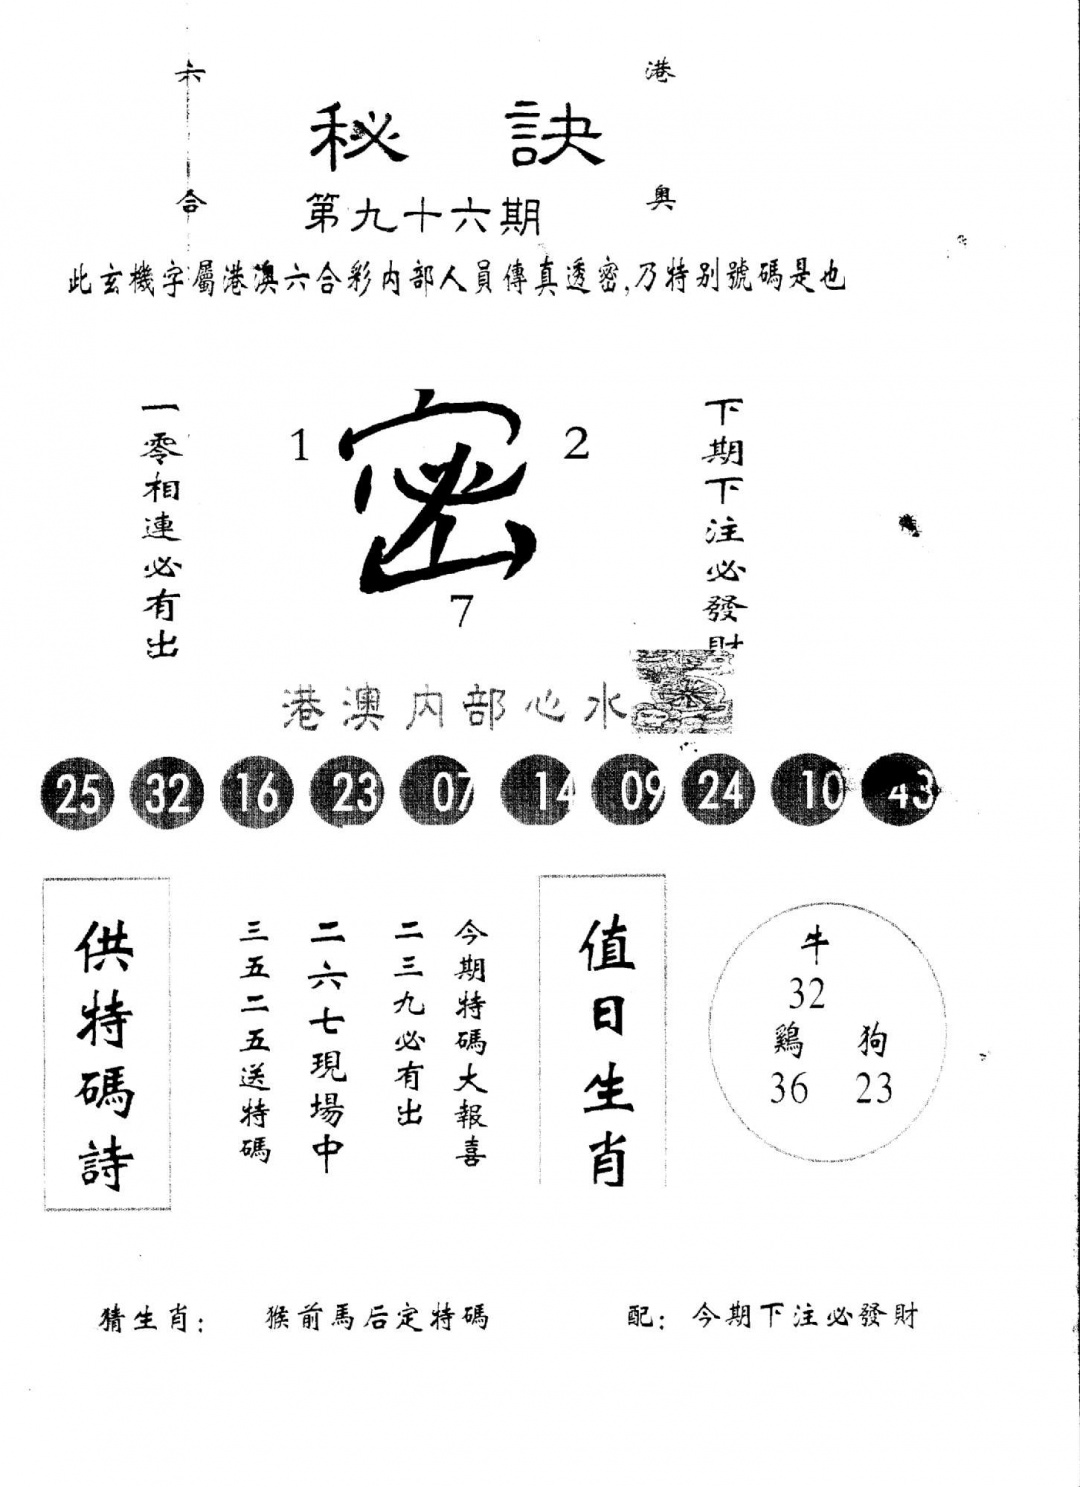 六合
港奥
秘訣
第九十六期
此玄機字屬港澳六合彩内部人員傳真透密,乃特别號碼是也
一零相連必有出
1
密
2
7
下期下注必發財
港澳内部心水
25 32 16 23 07 14 09 24 10 43
供特碼詩
今期特碼大報喜
二三九必有出
二六七現場中
三五二五送特碼
值日生肖
牛
32
鷄 狗
36 23
猜生肖: 猴前馬后定特碼 配: 今期下注必發財